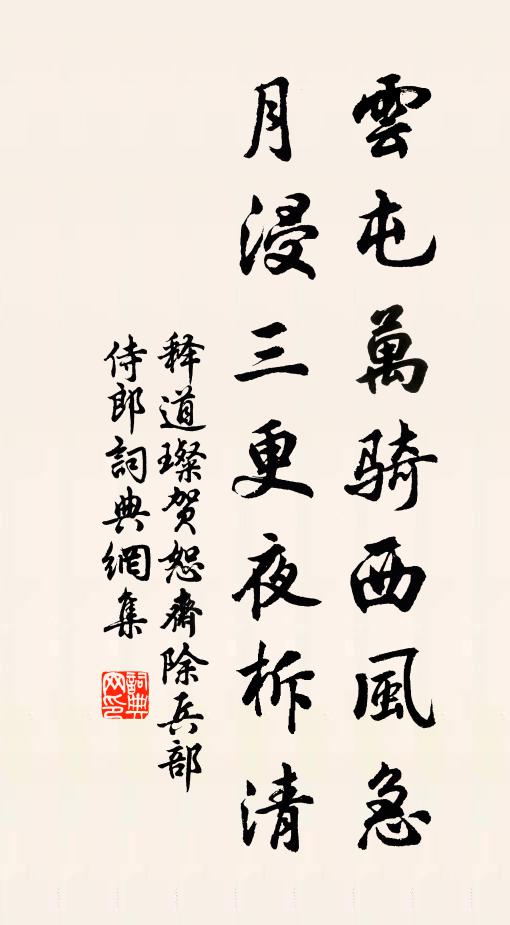 雲屯萬騎西風急
月浸三更夜柝清
释道璨贺恕齋除兵部
侍郎詞典網集
詞典
网印